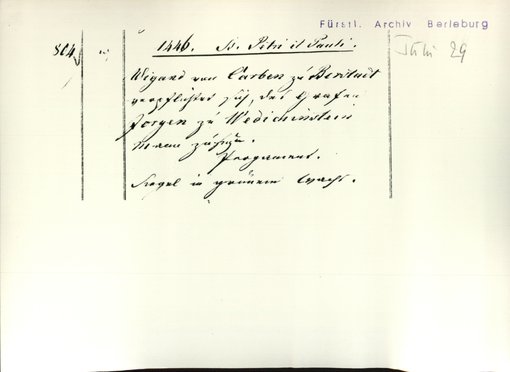 Fürstl. Archiv Berleburg
804
1446. St. Petri et Pauli.
Juni 29
Wigand von Carben zu Berstadt
verpflichtet sich, des Grafen
Jorgen zu Wedichinstein
Mann zu sein.
Pergament.
Siegel in grünem Wachs.